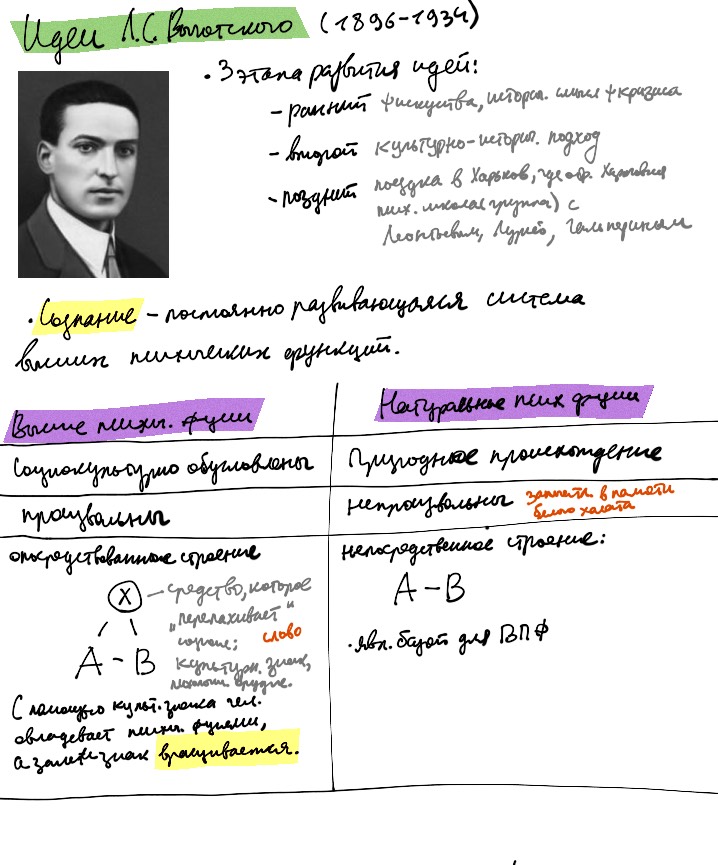 Идеи Л.С. Выготского (1896-1934)
• 3 этапа развития идей:
- ранний ψ искусства, историч. смысл ψ кризиса
- второй культурно-истори. подход
- поздний поездка в Харьков, где обр.
псих. школа (группа) с
Леонтьевым, Лурией, Гальпериным
• Сознание - постоянно развивающаяся система
высших психических функций.
Высшие психич. функции
Натуральные псих функции
Социокультурно обусловлены
Природное происхождение
произвольны
непроизвольны запнет. в памяти
белого халата
опосредствованное строение
X - средство, которое
„перепахивает"
слово
A - B культурн. знак,
психологич. орудие.
С помощью культ. знака чел.
овладевает псих. функциями,
а затем знак вращивается.
непосредственное строение:
A - B
• явл. базой для ВПФ